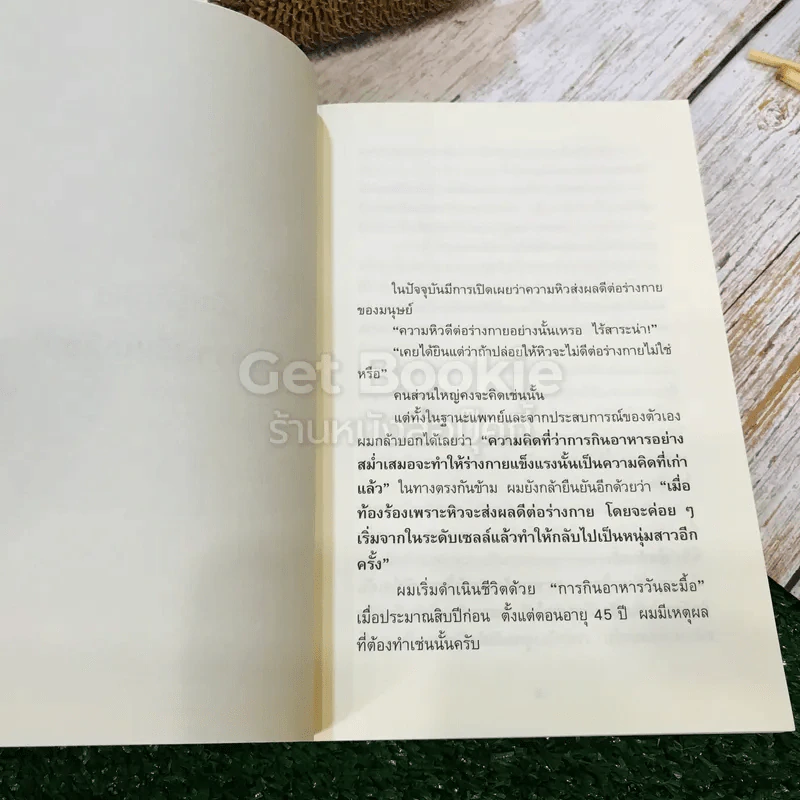 ในปัจจุบันมีการเปิดเผยว่าความหิวส่งผลดีต่อร่างกาย
ของมนุษย์
“ความหิวดีต่อร่างกายอย่างนั้นเหรอ ไร้สาระน่า!”
“เคยได้ยินแต่ว่าถ้าปล่อยให้หิวจะไม่ดีต่อร่างกายไม่ใช่
หรือ”
Get Bookie
คนส่วนใหญ่คงจะคิดเช่นนั้น
แต่ทั้งในฐานะแพทย์และจากประสบการณ์ของตัวเอง
ร้านหนังสือบุ๊คกี้
ผมกล้าบอกได้เลยว่า “ความคิดที่ว่าการกินอาหารอย่าง
สม่ำเสมอจะทำให้ร่างกายแข็งแรงนั้นเป็นความคิดที่เก่า
แล้ว” ในทางตรงกันข้าม ผมยังกล้ายืนยันอีกด้วยว่า “เมื่อ
ท้องร้องเพราะหิวจะส่งผลดีต่อร่างกาย โดยจะค่อย ๆ
เริ่มจากในระดับเซลล์แล้วทำให้กลับไปเป็นหนุ่มสาวอีก
ครั้ง”
ผมเริ่มดำเนินชีวิตด้วย “การกินอาหารวันละมื้อ”
เมื่อประมาณสิบปีก่อน ตั้งแต่ตอนอายุ 45 ปี ผมมีเหตุผล
ที่ต้องทำเช่นนั้นครับ